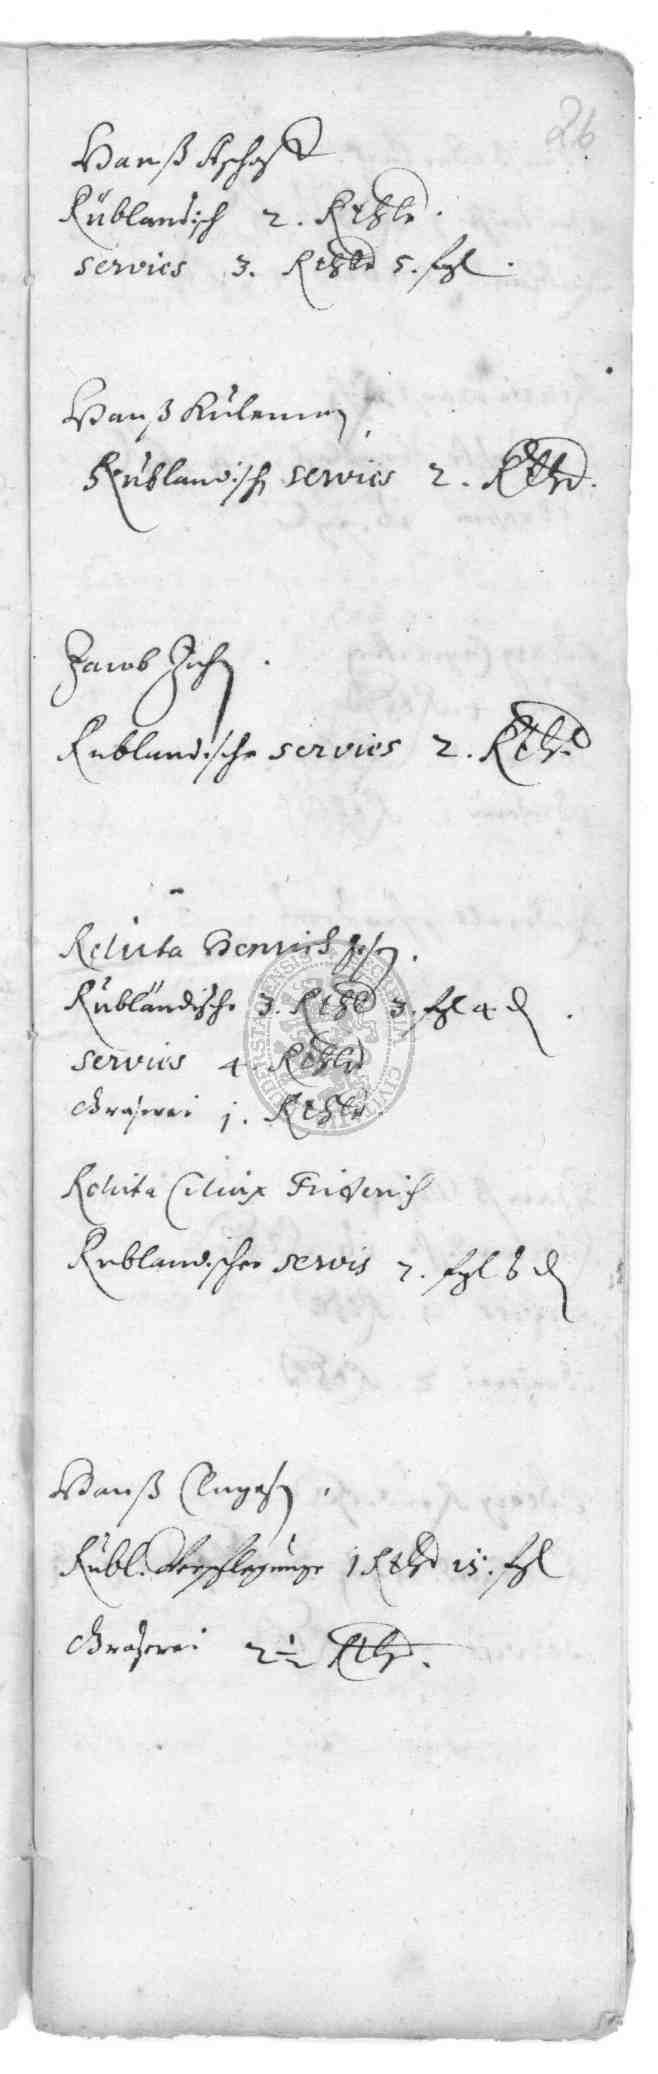 26
Hanß Aschoff
Rüblandisch 2. Rthlr.
servics 3. Rthlr 5. ßgl.
Hanß Küleman
Rüblandisch servics 2. Rthlr.
Jacob
Rublandische servics 2. Rthlr
Relicta Henrich
Rübländische 3. Rthlr 3. ßgl 4 d.
servics 4. Rthlr
Graserei j. Rthlr
Relicta Friderich
Rublandischer servis 7. ßgl 8 d
Hanß
Rübl. Verpflegunge 1 Rthlr 15. ßgl
Graserei 2 1/2 Rthlr.